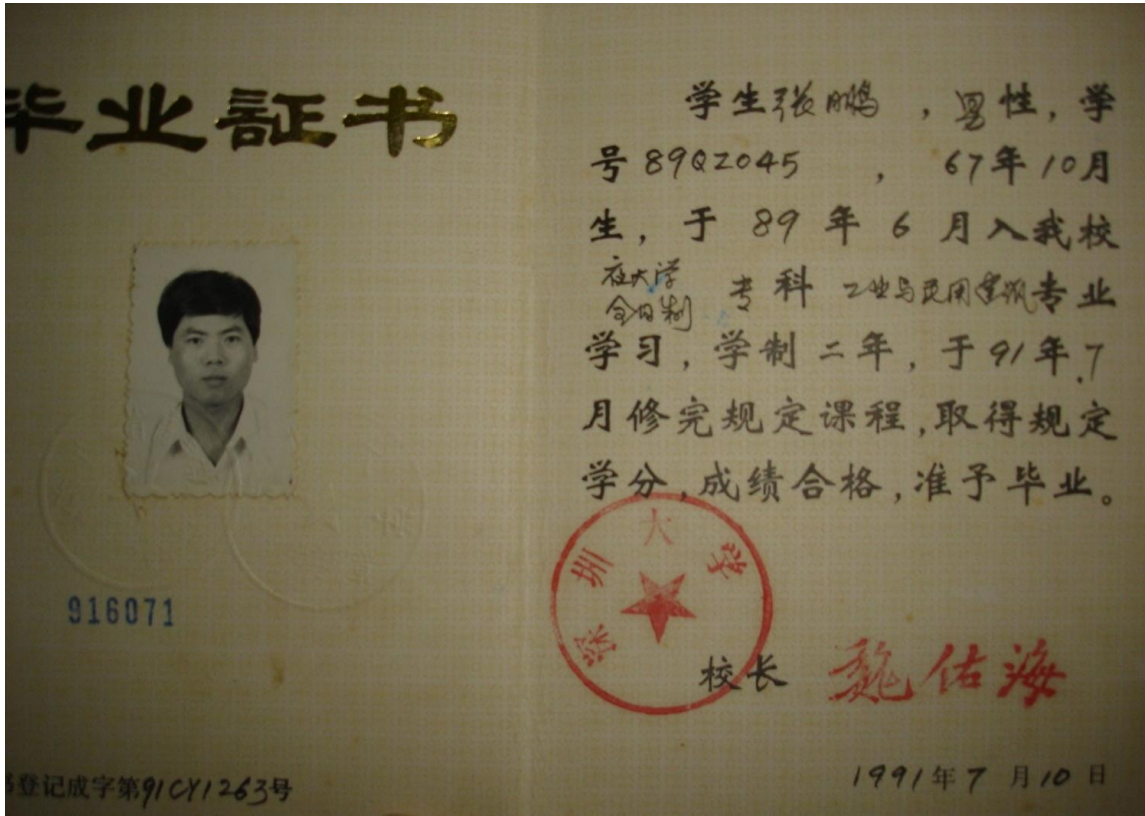 毕业証书
916071
书登记成字第91CY1263号
学生张鹏，男性，学
号89QZ045，67年10月
生，于89年6月入我校
夜大学
全日制
专科工业与民用建筑专业
学习，学制二年，于91年7
月修完规定课程，取得规定
学分，成绩合格，准予毕业。
深圳大学
校长 魏佑海
1991年7月10日